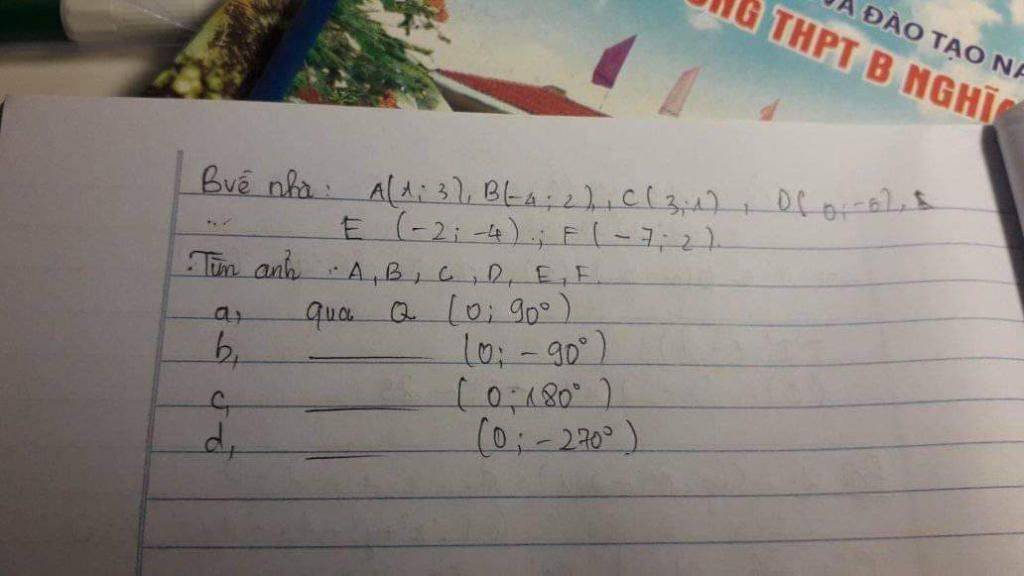 VÀ ĐÀO TẠO NA
ỜNG THPT B NGHĨA
Bvề nhà: A(1; 3), B(-4; 2), C(3; 1), D(0; -6),
E (-2; -4).; F(-7; 2).
Tìm ảnh A, B, C, D, E, F.
a, qua Q (0; 90°)
b, ——— (0; -90°)
c, ——— (0; 180°)
d, ——— (0; -270°)